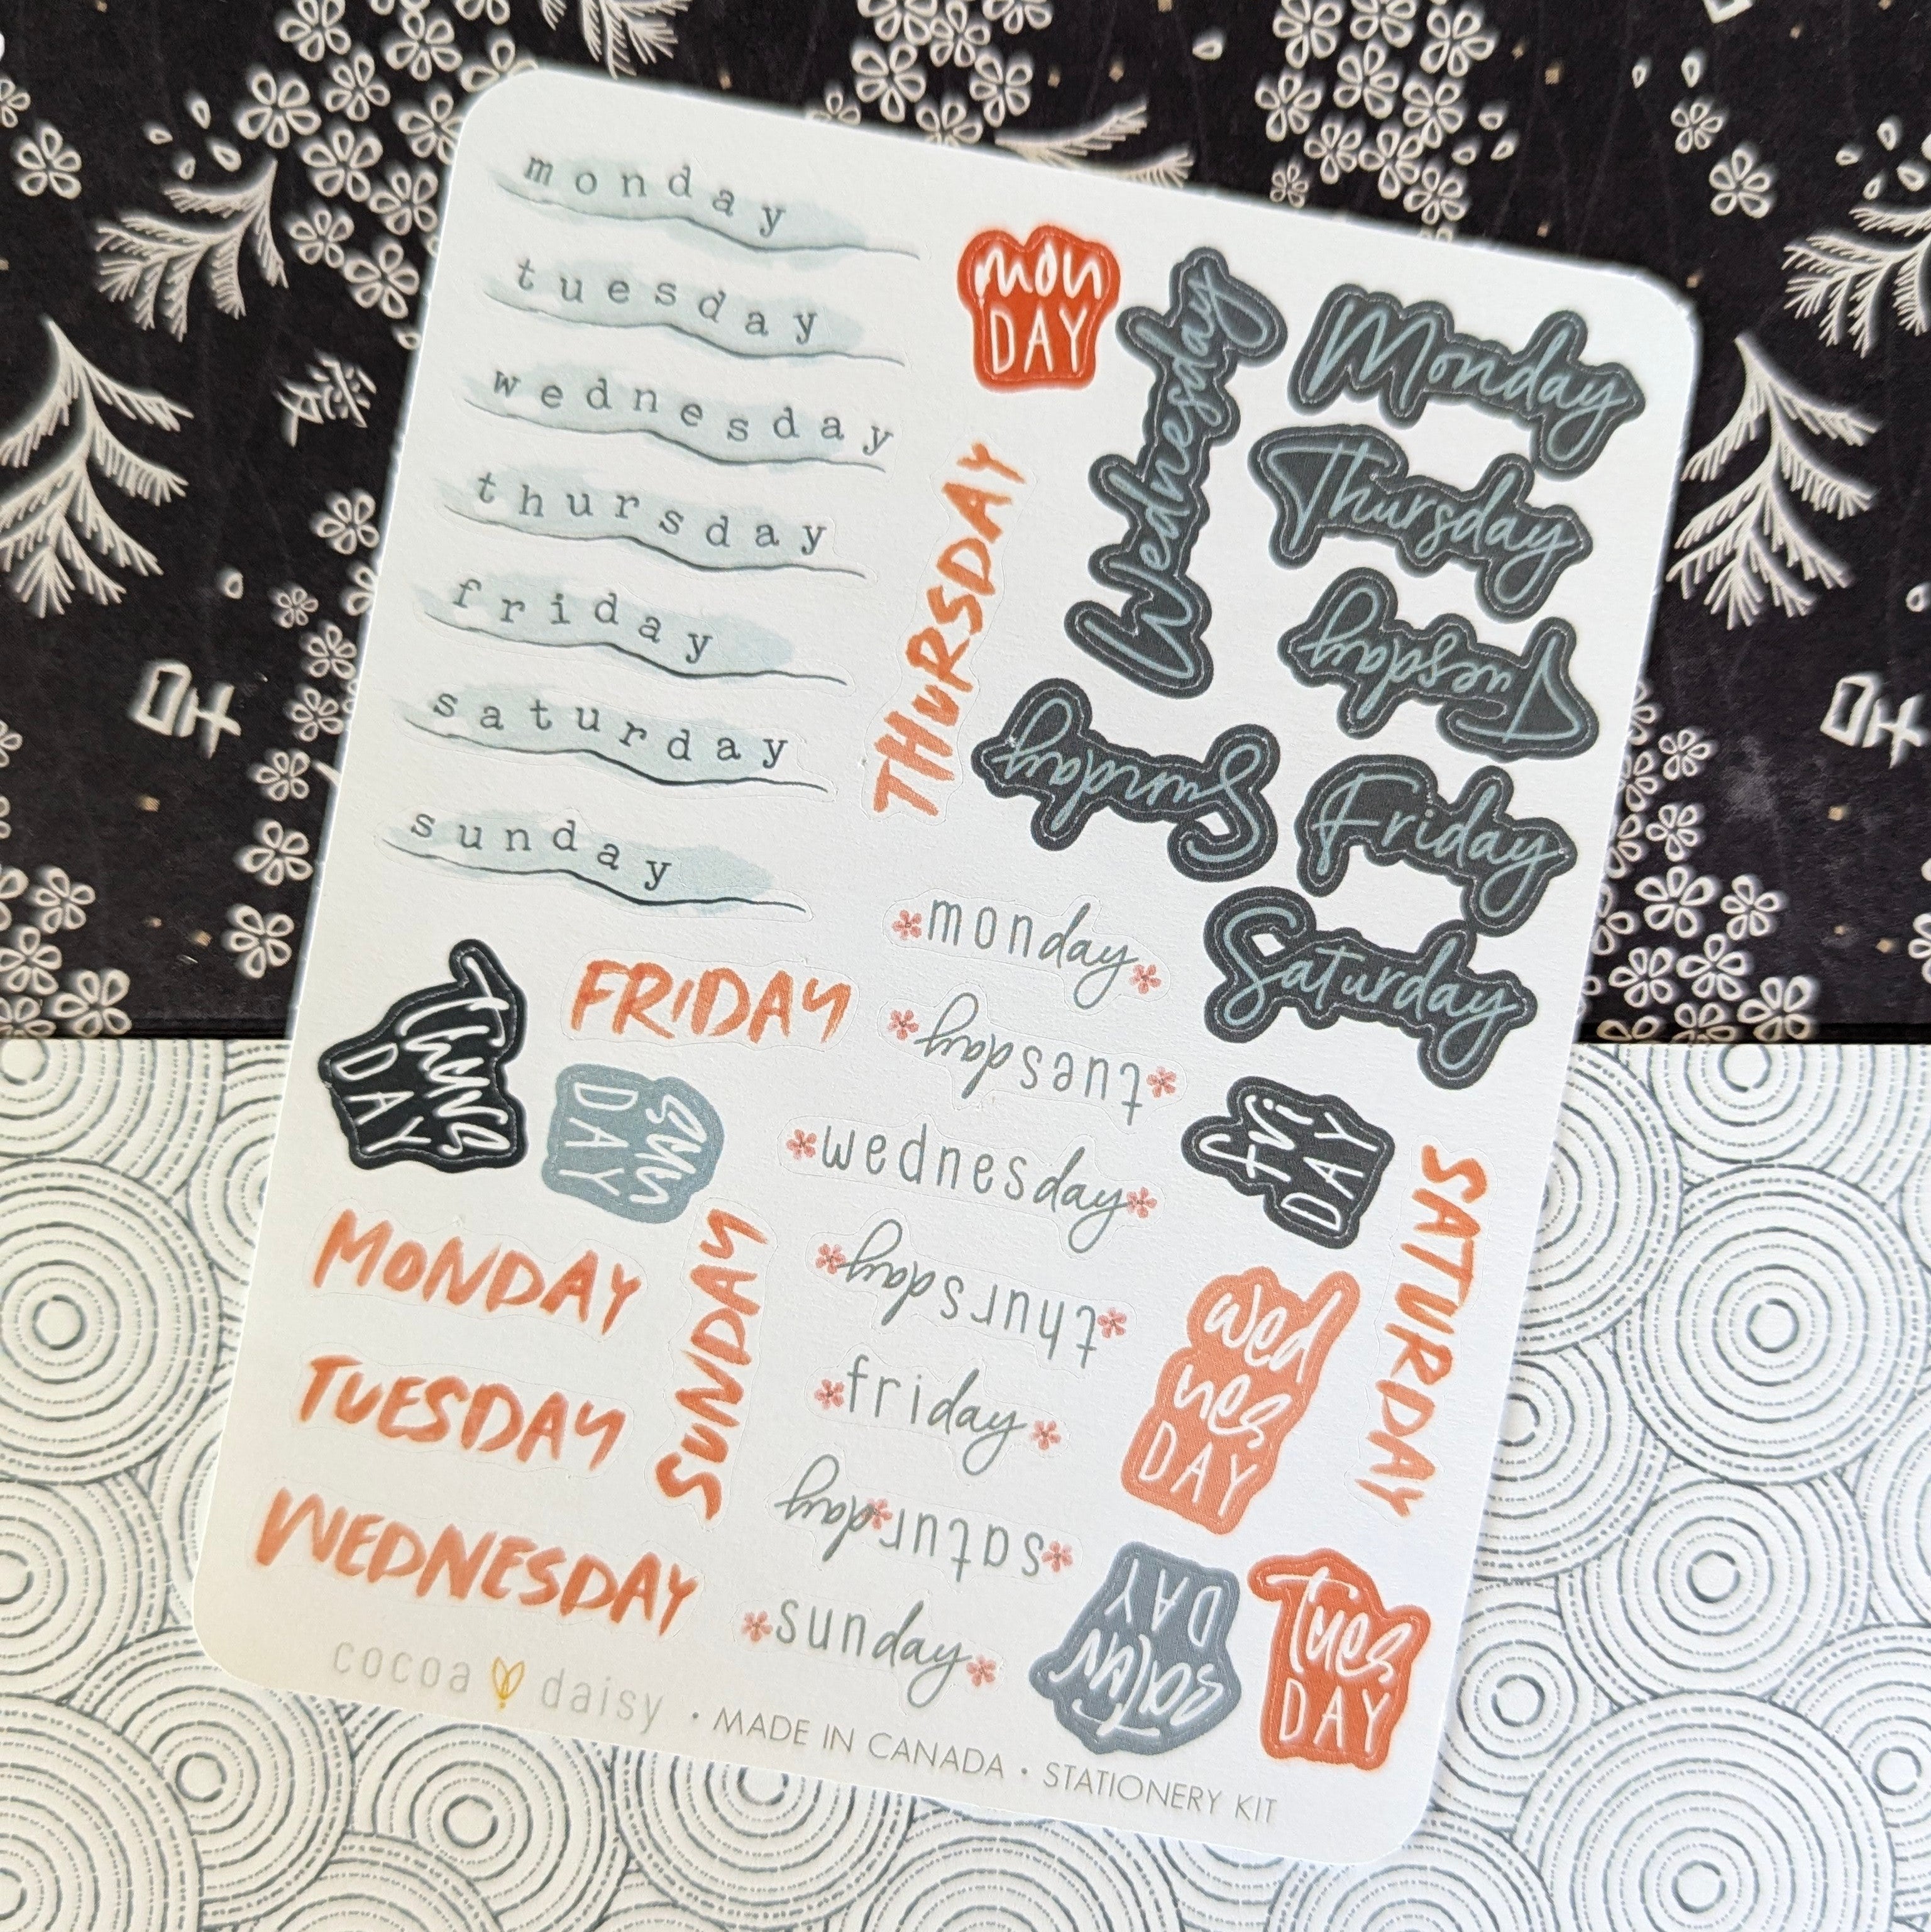 monday
tuesday
wednesday
thursday
friday
saturday
sunday
mon
DAY
Wednesday
Monday
Thursday
Tuesday
Friday
Saturday
Sunday
THURSDAY
monday
tuesday
wednesday
thursday
friday
saturday
sunday
thurs
DAY
FRIDAY
sun
DAY
MONDAY
TUESDAY
WEDNESDAY
SUNDAY
fri
DAY
SATURDAY
wed
nes
DAY
satur
DAY
tues
DAY
cocoa daisy • MADE IN CANADA • STATIONERY KIT